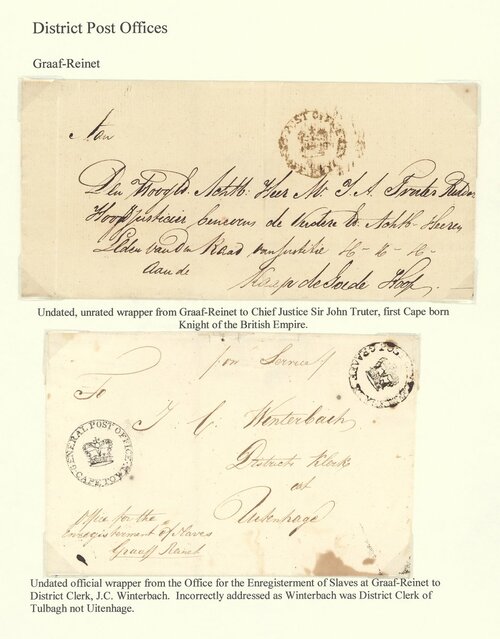 District Post Offices
Graaf-Reinet
POST OFFICE
Aan
Den Hoog Ed. Achtb: Heer Mr. J. A. Truter Ridder
Hoofdjusticier benevens de verdere Ed. Achtb. Heeren
Leden van den Raad van Justitie
aan de
Kaap de Goede Hoop.
Undated, unrated wrapper from Graaf-Reinet to Chief Justice Sir John Truter, first Cape born
Knight of the British Empire.
on Service
To
J C: Winterbach
Districts Klerk
at
Uitenhage
GENERAL POST OFFICE
CAPE TOWN
Office for the
Enregisterment of Slaves
Graaff Reinet
Undated official wrapper from the Office for the Enregisterment of Slaves at Graaf-Reinet to
District Clerk, J.C. Winterbach. Incorrectly addressed as Winterbach was District Clerk of
Tulbagh not Uitenhage.